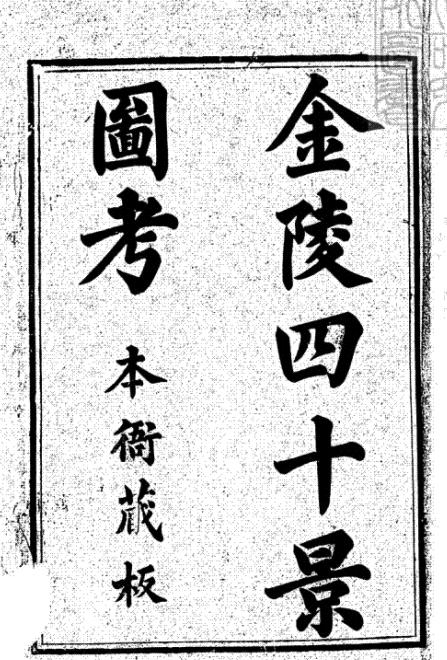 金陵四十景
圖考
本衙藏板